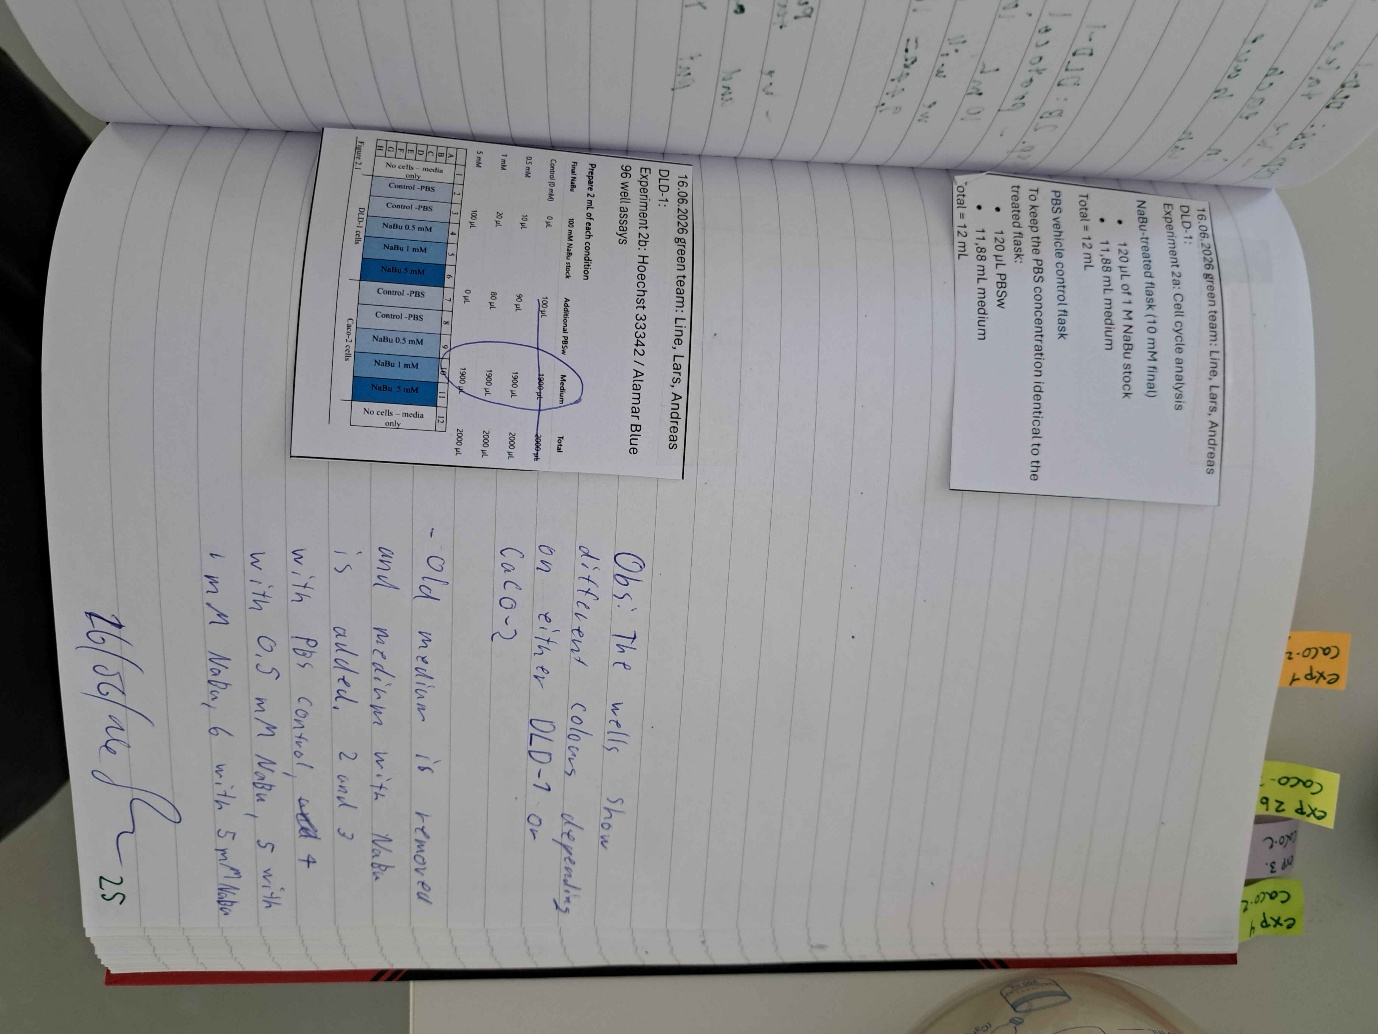 16.06.2026 green team: Line, Lars, Andreas
DLD-1:
Experiment 2a: Cell cycle analysis
NaBu-treated flask (10 mM final)
• 120 µL of 1 M NaBu stock
• 11,88 mL medium
Total = 12 mL
PBS vehicle control flask
To keep the PBS concentration identical to the
treated flask:
• 120 µL PBSw
• 11,88 mL medium
otal = 12 mL
16.06.2026 green team: Line, Lars, Andreas
DLD-1:
Experiment 2b: Hoechst 33342 / Alamar Blue
96 well assays
Prepare 2 mL of each condition
Final NaBu 100 mM NaBu stock Additional PBSw Medium Total
Control (0 mM) 0 µL 100 µL 1900 µL 2000 µL
0.5 mM 10 µL 90 µL 1900 µL 2000 µL
1 mM 20 µL 80 µL 1900 µL 2000 µL
5 mM 100 µL 0 µL 1900 µL 2000 µL
1 2 3 4 5 6 7 8 9 10 11 12
A
B
C
D
E
F
G
H
No cells – media only
Control -PBS
Control -PBS
NaBu 0.5 mM
NaBu 1 mM
NaBu 5 mM
Control -PBS
Control -PBS
NaBu 0.5 mM
NaBu 1 mM
NaBu 5 mM
No cells – media only
DLD-1 cells Caco-2 cells
Figure 2.1
Obs: The wells show
different colours depending
on either DLD-1 or
CaCo-2
- Old medium is removed
and medium with NaBu
is added, 2 and 3
with PBS control, 4
with 0,5 mM NaBu, 5 with
1 mM NaBu, 6 with 5 mM NaBu
25
exp 1
CaCo-2
exp 2b
CaCo-
exp 3.
CaCo-2
exp 4
CaCo-2